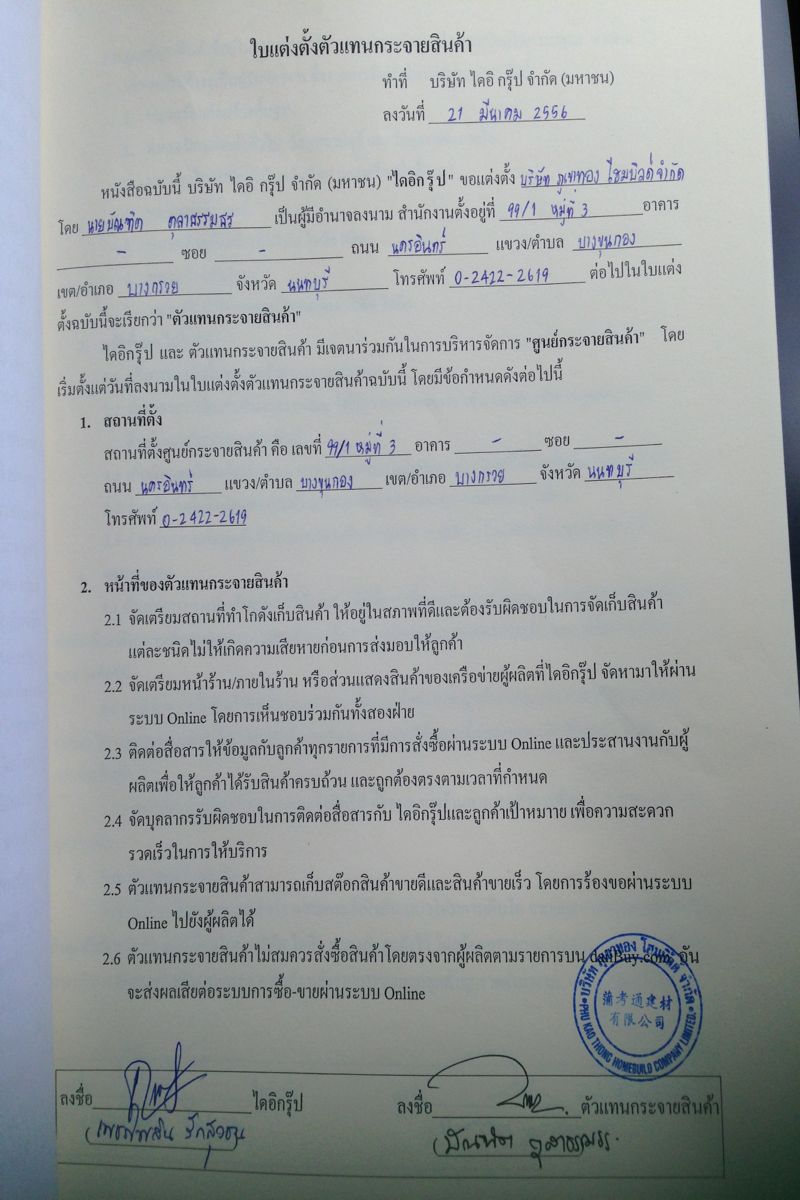 ใบแต่งตั้งตัวแทนกระจายสินค้า
ทำที่ บริษัท ไดอิ กรุ๊ป จำกัด (มหาชน)
ลงวันที่ 21 มีนาคม 2556
หนังสือฉบับนี้ บริษัท ไดอิ กรุ๊ป จำกัด (มหาชน) "ไดอิกรุ๊ป" ขอแต่งตั้ง บริษัท ภูเขาทอง โฮมบิวด์ จำกัด
โดย นายบัณฑิต ตุลาธรรมสร เป็นผู้มีอำนาจลงนาม สำนักงานตั้งอยู่ที่ 99/1 หมู่ที่ 3 อาคาร
- ซอย - ถนน นครอินทร์ แขวง/ตำบล บางขุนกอง
เขต/อำเภอ บางกรวย จังหวัด นนทบุรี โทรศัพท์ 0-2422-2619 ต่อไปในใบแต่ง
ตั้งฉบับนี้จะเรียกว่า "ตัวแทนกระจายสินค้า"
ไดอิกรุ๊ป และ ตัวแทนกระจายสินค้า มีเจตนาร่วมกันในการบริหารจัดการ "ศูนย์กระจายสินค้า" โดย
เริ่มตั้งแต่วันที่ลงนามในใบแต่งตั้งตัวแทนกระจายสินค้าฉบับนี้ โดยมีข้อกำหนดดังต่อไปนี้
1. สถานที่ตั้ง
สถานที่ตั้งศูนย์กระจายสินค้า คือ เลขที่ 99/1 หมู่ที่ 3 อาคาร - ซอย -
ถนน นครอินทร์ แขวง/ตำบล บางขุนกอง เขต/อำเภอ บางกรวย จังหวัด นนทบุรี
โทรศัพท์ 0-2422-2619
2. หน้าที่ของตัวแทนกระจายสินค้า
2.1 จัดเตรียมสถานที่ทำโกดังเก็บสินค้า ให้อยู่ในสภาพที่ดีและต้องรับผิดชอบในการจัดเก็บสินค้า
แต่ละชนิดไม่ให้เกิดความเสียหายก่อนการส่งมอบให้ลูกค้า
2.2 จัดเตรียมหน้าร้าน/ภายในร้าน หรือส่วนแสดงสินค้าของเครือข่ายผู้ผลิตที่ไดอิกรุ๊ป จัดหามาให้ผ่าน
ระบบ Online โดยการเห็นชอบร่วมกันทั้งสองฝ่าย
2.3 ติดต่อสื่อสารให้ข้อมูลกับลูกค้าทุกรายการที่มีการสั่งซื้อผ่านระบบ Online และประสานงานกับผู้
ผลิตเพื่อให้ลูกค้าได้รับสินค้าครบถ้วน และถูกต้องตรงตามเวลาที่กำหนด
2.4 จัดบุคลากรรับผิดชอบในการติดต่อสื่อสารกับ ไดอิกรุ๊ปและลูกค้าเป้าหมาาย เพื่อความสะดวก
รวดเร็วในการให้บริการ
2.5 ตัวแทนกระจายสินค้าสามารถเก็บสต๊อกสินค้าขายดีและสินค้าขายเร็ว โดยการร้องขอผ่านระบบ
Online ไปยังผู้ผลิตได้
2.6 ตัวแทนกระจายสินค้าไม่สมควรสั่งซื้อสินค้าโดยตรงจากผู้ผลิตตามรายการบน อัน
จะส่งผลเสียต่อระบบการซื้อ-ขายผ่านระบบ Online
บริษัท ภูเขาทอง โฮมบิวด์ จำกัด
蒲考通建材
有限公司
PHU KAO THONG HOMEBUILD COMPANY LIMITED.
ลงชื่อ ไดอิกรุ๊ป ลงชื่อ ตัวแทนกระจายสินค้า
(บัณฑิต ตุลาธรรมสร)